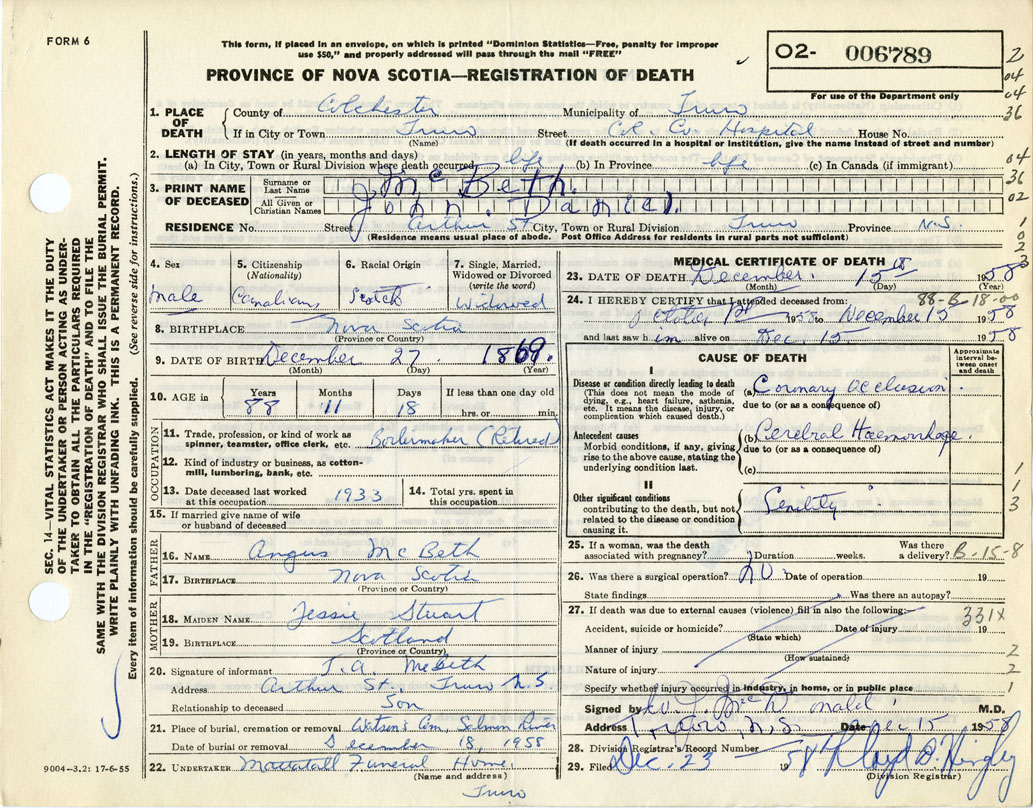 FORM 6
This form, if placed in an envelope, on which is printed "Dominion Statistics—Free, penalty for improper
use $50," and properly addressed will pass through the mail "FREE"
PROVINCE OF NOVA SCOTIA—REGISTRATION OF DEATH
O2- 006789
For use of the Department only
2
04
04
36
1. PLACE OF DEATH
County of Colchester Municipality of Truro
If in City or Town Truro Street Col. Co. Hospital House No.
(Name) (If death occurred in a hospital or Institution, give the name instead of street and number)
2. LENGTH OF STAY (in years, months and days)
(a) In City, Town or Rural Division where death occurred life (b) In Province life (c) In Canada (if immigrant)
04
36
02
3. PRINT NAME OF DECEASED
Surname or Last Name McBeth.
All Given or Christian Names John. Daniel.
RESIDENCE No. Street Arthur St City, Town or Rural Division Truro Province N.S.
(Residence means usual place of abode. Post Office Address for residents in rural parts not sufficient)
1
0
2
3
4. Sex
male
5. Citizenship
(Nationality)
Canadians
6. Racial Origin
Scotch
7. Single, Married,
Widowed or Divorced
(write the word)
Widowed
8. BIRTHPLACE Nova Scotia
(Province or Country)
9. DATE OF BIRTH December 27 1869.
(Month) (Day) (Year)
10. AGE in
Years Months Days If less than one day
88 11 18 hrs. or min.
OCCUPATION
11. Trade, profession, or kind of work as
spinner, teamster, office clerk, etc. Boilermaker (Retired)
12. Kind of industry or business, as cotton-
mill, lumbering, bank, etc.
13. Date deceased last worked
at this occupation 1933
14. Total yrs. spent in
this occupation
15. If married give name of wife
or husband of deceased
FATHER
16. NAME Angus McBeth
17. BIRTHPLACE Nova Scotia
(Province or Country)
MOTHER
18. MAIDEN NAME Jessie Stuart
19. BIRTHPLACE Scotland
(Province or Country)
20. Signature of informant J.A. McBeth
Address Arthur St., Truro N.S
Relationship to deceased Son
21. Place of burial, cremation or removal Watson's Cem, Salmon River
Date of burial or removal December 18, 1958
22. UNDERTAKER Mattatall Funeral Home.
(Name and address)
Truro
MEDICAL CERTIFICATE OF DEATH
23. DATE OF DEATH December 15th 1958
(Month) (Day)
88-B 18-00
24. I HEREBY CERTIFY that I attended deceased from:
October 1st 1958 to December 15 1958
and last saw him alive on Dec. 15 1958
CAUSE OF DEATH
Approximate
interval be-
tween onset
and death
I
Disease or condition directly leading to death
(This does not mean the mode of
dying, e.g., heart failure, asthenia,
etc. It means the disease, injury, or
complication which caused death.)
(a) Coronary Occlusion.
due to (or as a consequence of)
Antecedent causes
Morbid conditions, if any, giving
rise to the above cause, stating the
underlying condition last.
(b) Cerebral Haemorrhage.
due to (or as a consequence of)
(c)
II
Other significant conditions
contributing to the death, but not
related to the disease or condition
causing it.
Senility
1
1
3
25. If a woman, was the death
associated with pregnancy? Duration weeks. Was there
a delivery? B-15-8
26. Was there a surgical operation? No Date of operation 19
State findings Was there an autopsy?
27. If death was due to external causes (violence) fill in also the following:
331x
Accident, suicide or homicide? Date of injury 19
(State which)
Manner of injury 2
(How sustained)
Nature of injury 2
Specify whether injury occurred in industry, in home, or in public place 1
Signed by M.D.
Address Truro, N.S. Date Dec 15 1958
28. Division Registrar's Record Number
29. Filed Dec. 23 1958 Lloyd
(Division Registrar)
SEC. 14—VITAL STATISTICS ACT MAKES IT THE DUTY
OF THE UNDERTAKER OR PERSON ACTING AS UNDER-
TAKER TO OBTAIN ALL THE PARTICULARS REQUIRED
IN THE "REGISTRATION OF DEATH" AND TO FILE THE
SAME WITH THE DIVISION REGISTRAR WHO SHALL ISSUE THE BURIAL PERMIT.
WRITE PLAINLY WITH UNFADING INK. THIS IS A PERMANENT RECORD.
Every item of information should be carefully supplied. (See reverse side for instructions.)
9004—3.2: 17-6-55